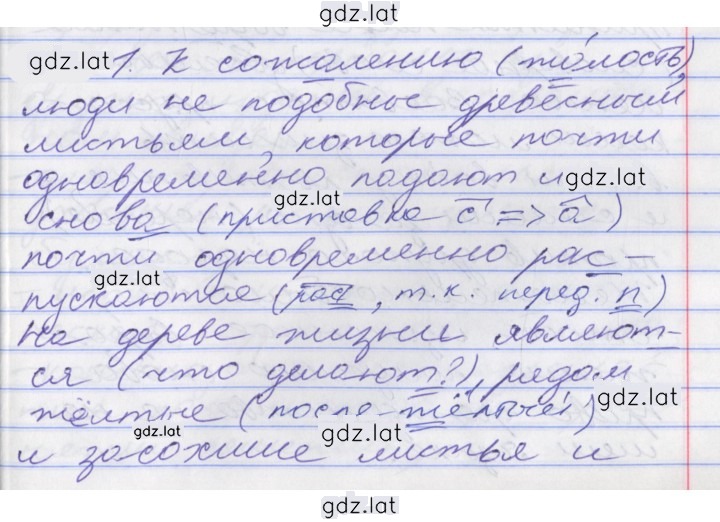 gdz.lat
gdz.lat 1. К сожалению (жалость),
люди не подобные древесным
листьям, которые почти
одновременно падают и
gdz.lat
gdz.lat
снова (приставка с => а)
почти одновременно рас-
gdz.lat
пускаются (рас, т.к. перед. п)
На дереве жизни являют-
ся (что делают?), рядом
gdz.lat
жёлтые (после-жёлтый)
gdz.lat
gdz.lat
и засохшие листья и
gdz.lat